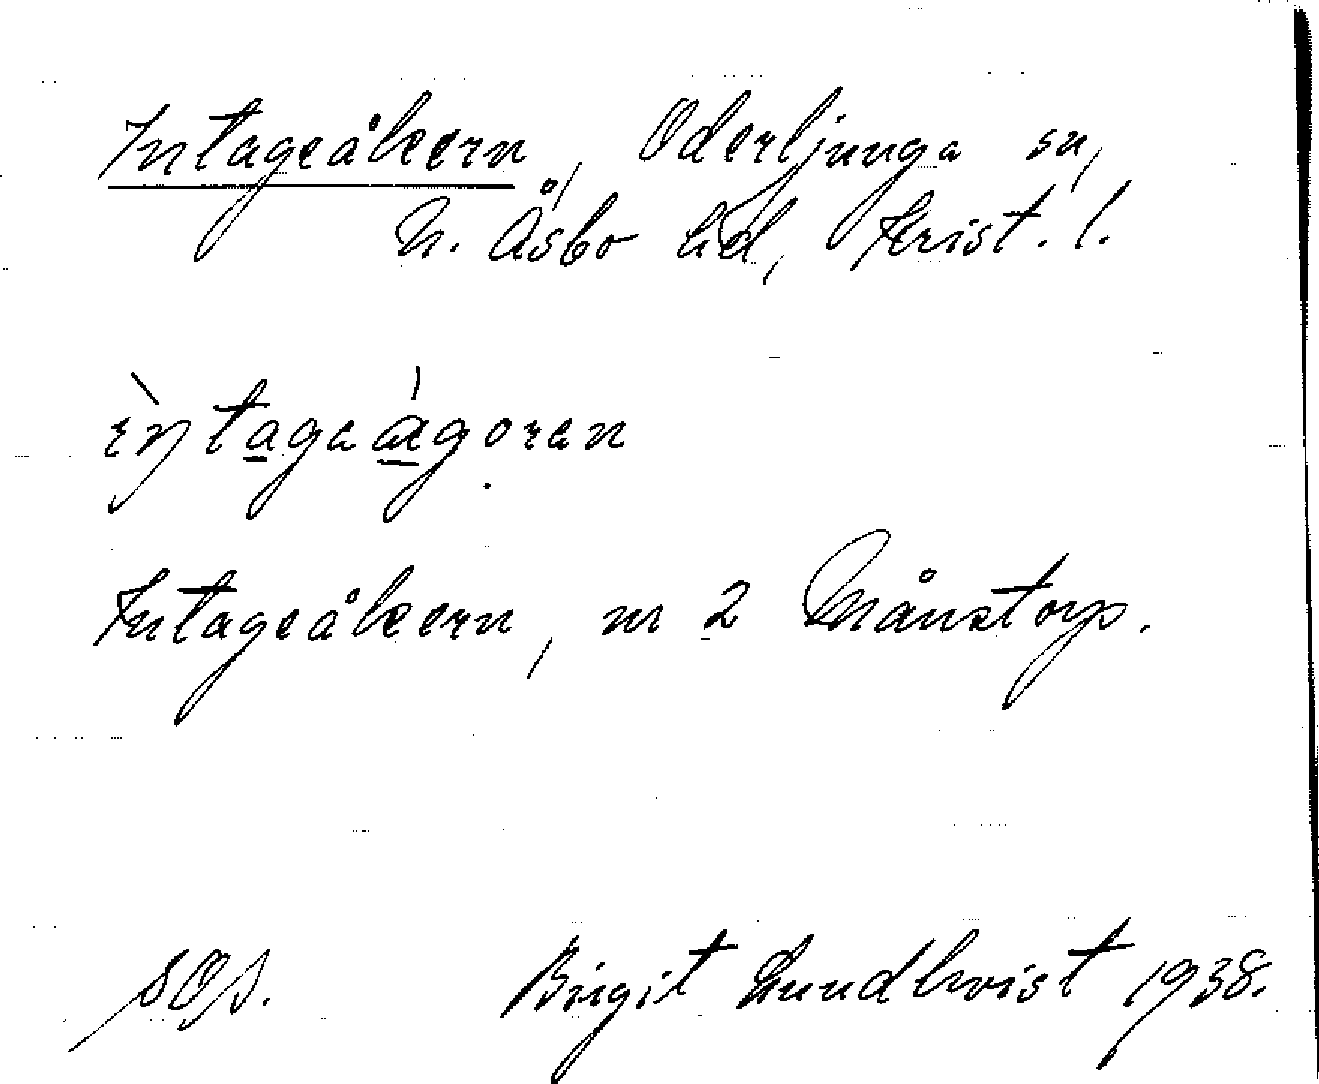 Intageåkern, Oderljunga sn,
N. Åsbo hd, Krist. l.
Intageåkern, nr 2 Månstorp.
Birgit Lundkvist 1938.